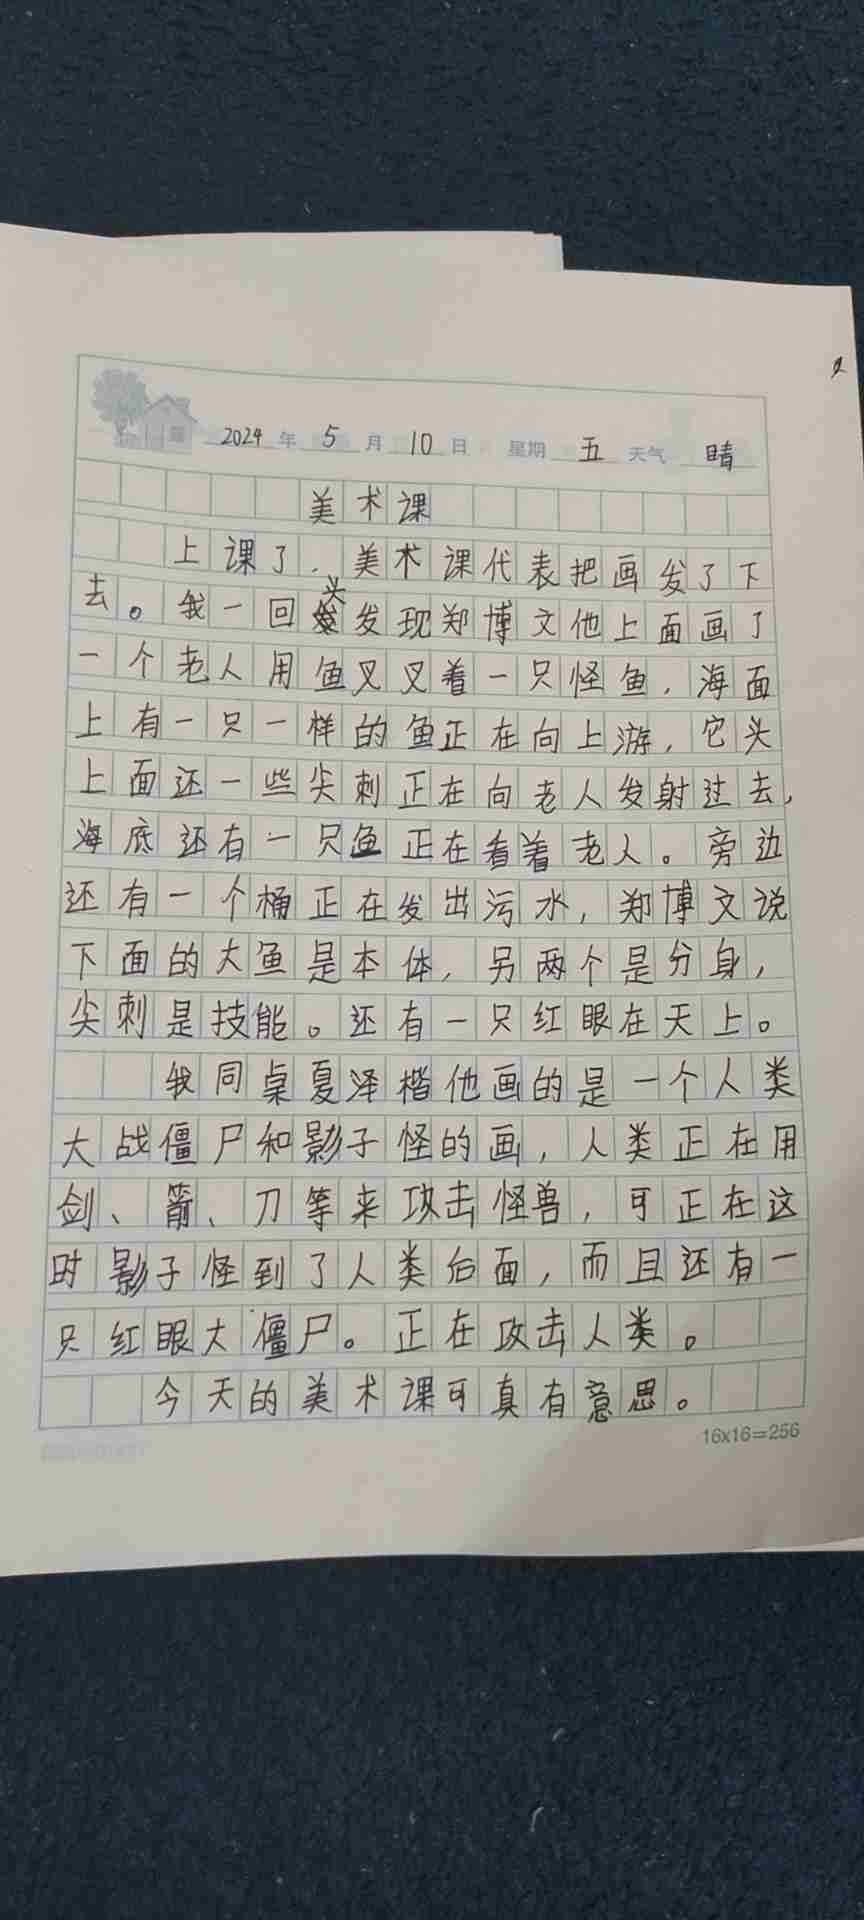 2024年5月10日 星期五天气晴
美术课
上课了,美术课代表把画发了下
去。我一回头发现郑博文他上面画了
一个老人用鱼叉叉着一只怪鱼,海面
上有一只一样的鱼正在向上游,它头
上面还一些尖刺正在向老人发射过去,
海底还有一只鱼正在看着老人。旁边
还有一个桶正在发出污水,郑博文说
下面的大鱼是本体,另两个是分身,
尖刺是技能。还有一只红眼在天上。
我同桌夏泽楷他画的是一个人类
大战僵尸和影子怪的画,人类正在用
剑、箭、刀等来攻击怪兽,可正在这
时影子怪到了人类后面,而且还有一
只红眼大僵尸。正在攻击人类。
今天的美术课可真有意思。
16x16=256